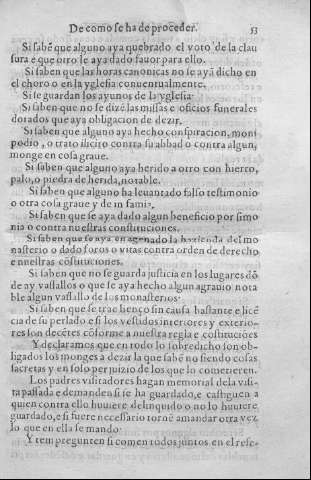 De como se ha de proceder. 53
Si sabē que alguno aya quebrado el voto de la clau
sura e que otro le aya dado favor para ello.
Si saben que las horas canonicas no se ayā dicho en
el choro o en la yglesia conuentualmente.
Si se guardan los ayunos de la yglesia.
Si saben que no se dizē las missas e oficios funerales
dotados que aya obligacion de dezir.
Si saben que alguno aya hecho conspiracion, moni
podio, o trato ilicito contra su abbad o contra algun
monge en cosa graue.
Si saben que alguno aya herido a otro con hierro,
palo, o piedra de herida, notable.
Si saben que alguno ha leuantado falso testimonio
o otra cosa graue y de infamia,
Si saben que se aya dado algun beneficio por simo
nia o contra nuestras constituciones.
Si saben que se aya enagenado la hazienda del mo
nasterio o dado foros o vitas contra orden de derecho
e nuestras cōstituciones.
Si saben que no se guarda justicia en los lugares dō
de ay vassallos o que se aya hecho algun agrauio nota
ble algun vassallo de los monasterios.
Si saben que se trac lienço sin causa bastante e licē
cia de su perlado e si los vestidos interiores y exterio-
res son decētes cōforme a nuestra regla e cōstituciōes
Y declaramos que en todo lo sobredicho son ob-
ligados los monges a dezir la que sabē no siendo cosas
sacretas y en solo perjuizio de los que lo cometieren.
Los padres visitadores hagan memorial de la visi-
ta passada e demanden si se ha guardado, e castiguen a
quien contra ello huuiere delinquido o no lo huuiere
guardado, e si fuere necessario tornē amandar otra vez
lo que en ella se mando.
Y tem pregunten si comen todos juntos en el refe-